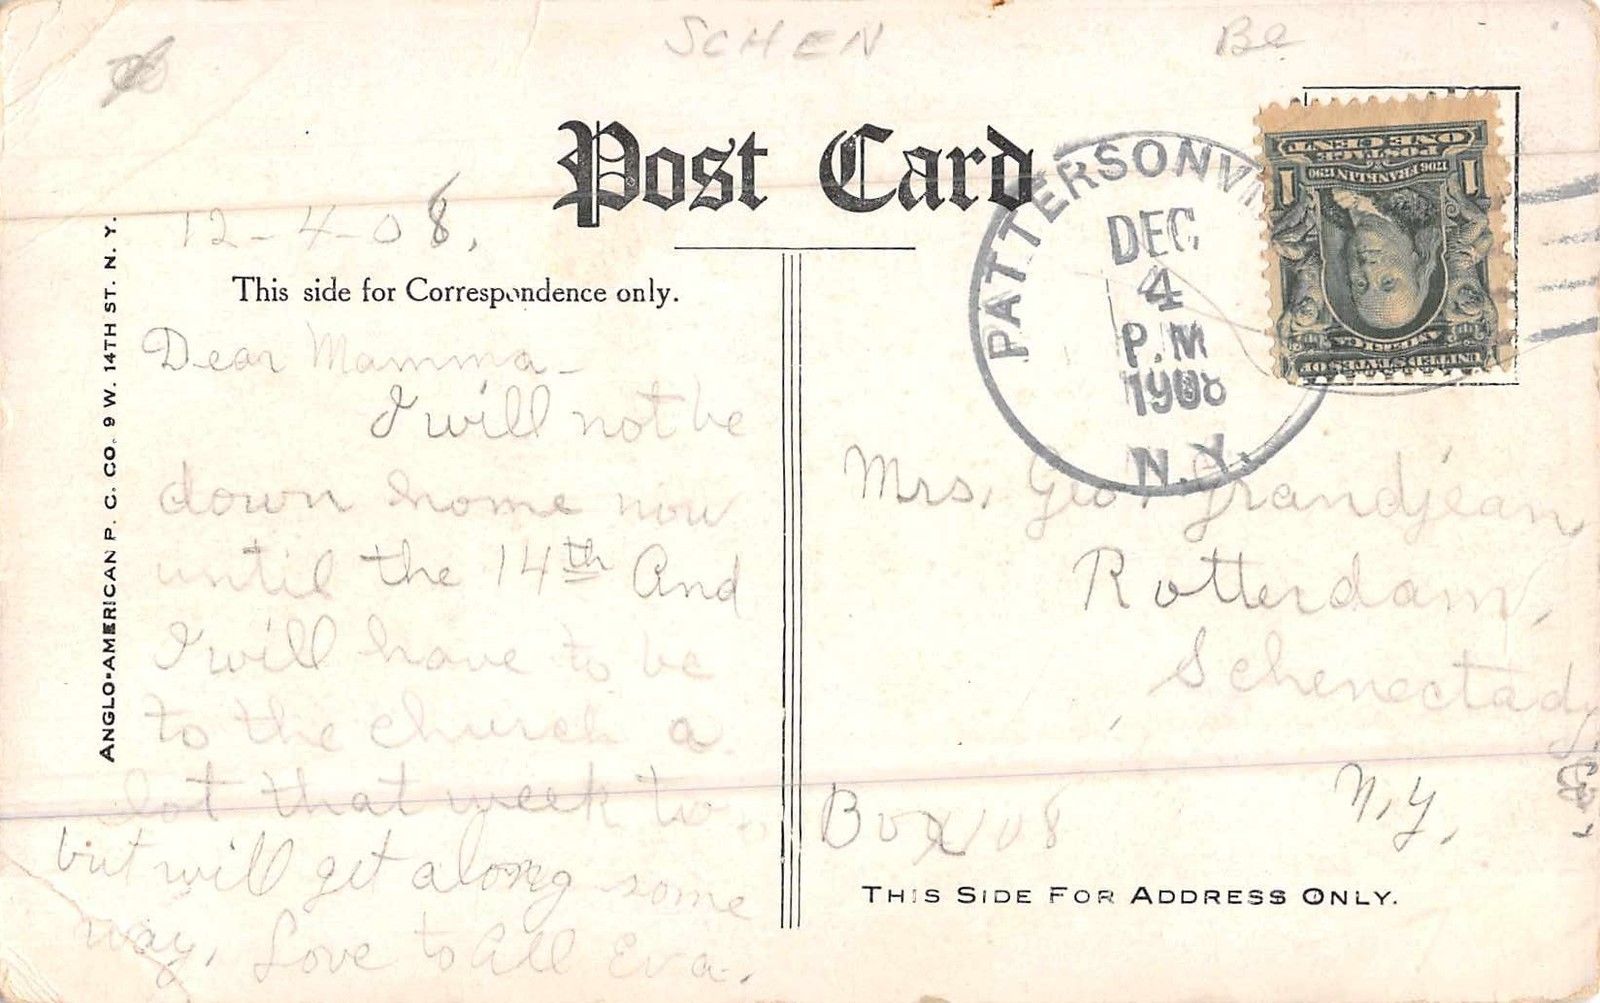 SCHEN
Be
Post Card
12-4-08,
This side for Correspondence only.
Dear Mamma-
I will not be
down home now
until the 14th And
I will have to be
to the church a
lot that week to.
but will get along some
way. Love to All Eva.
ANGLO-AMERICAN P. C. CO. 9 W. 14TH ST. N. Y.
PATTERSONVI
DEC
4
P.M
1908
N.Y.
ONE CENT
POSTAGE
1706 FRANKLIN 1790
1 1
UNITED STATES OF
AMERICA
Mrs. Geo. Grandjean
Rotterdam,
Schenectady
N.Y.
Box 108
THIS SIDE FOR ADDRESS ONLY.